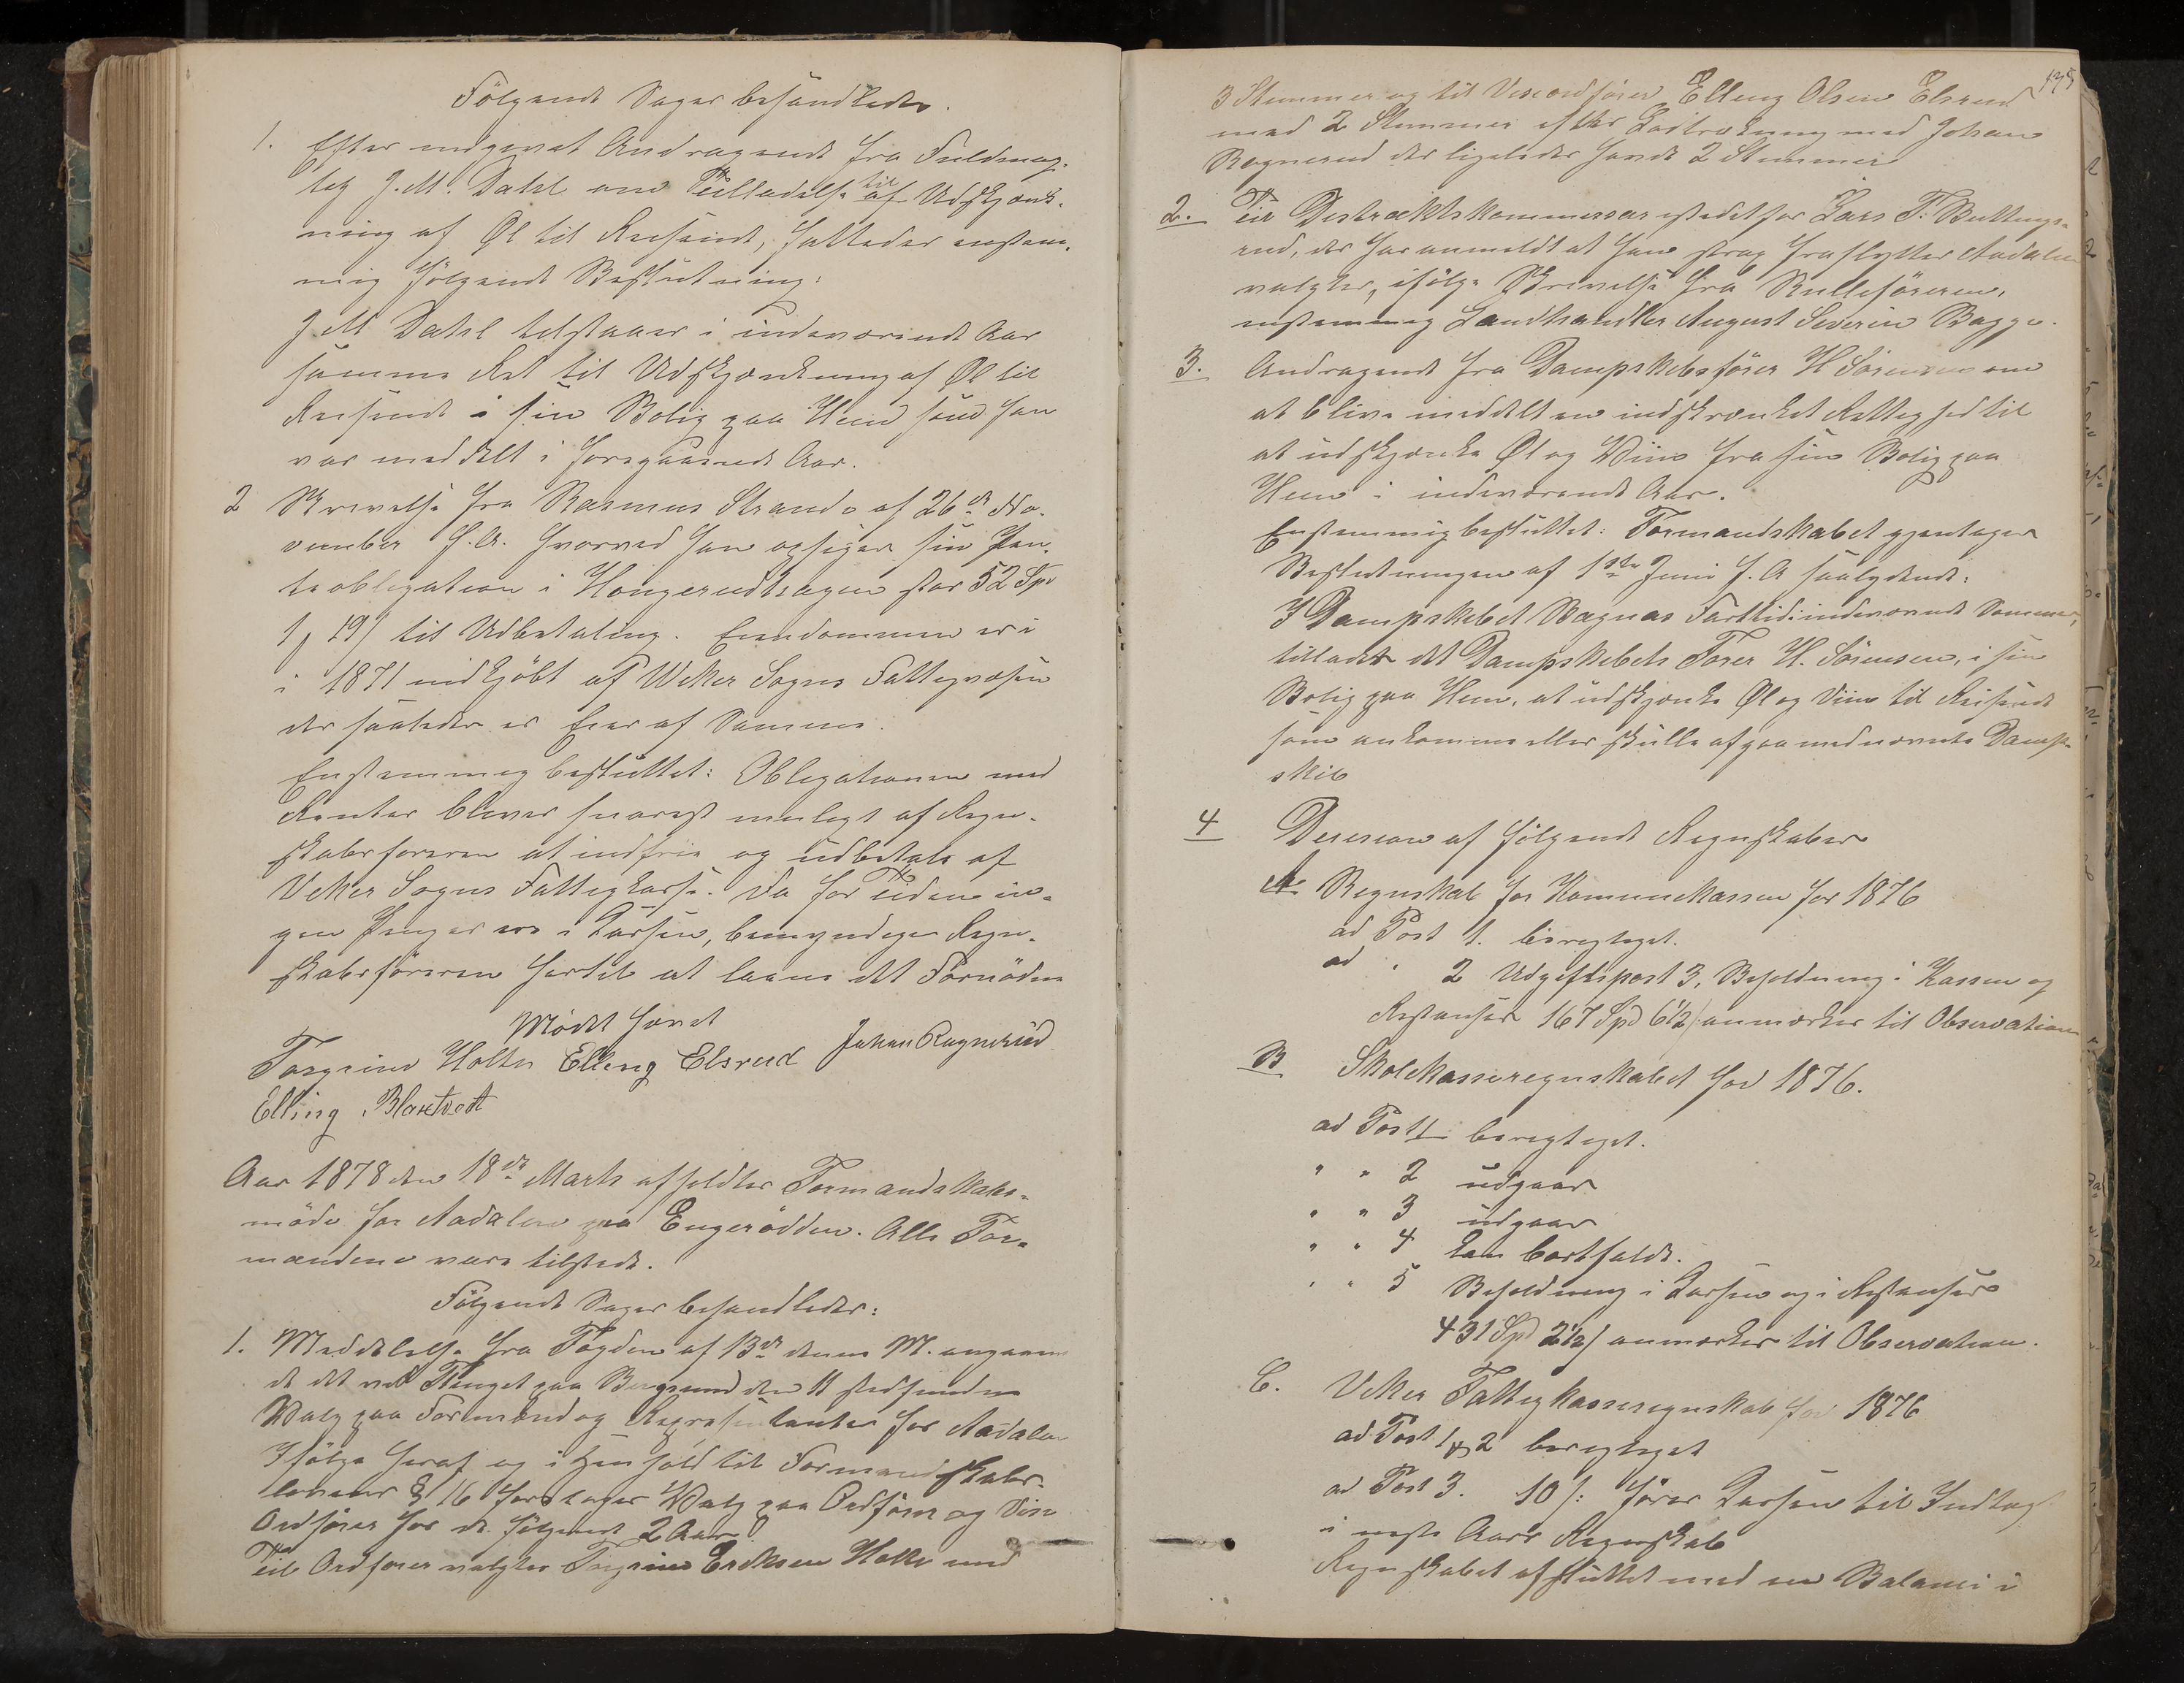 Følgende Sager behandledes.
1. Efter indgivet Andragende fra Fuldmæg-
tig J. M. Dahl om Tilladelse til af Udskjænk-
ning af Øl til Reisende, fattedes enstem-
mig følgende Beslutning:
J M Dahl tilstaaes i indeværende Aar
samme Ret til Udskjænkning af Øl til
Reisende i sin Bolig paa Hen som han
var meddelt i foregaaende Aar.
2 Skrivelse fra Rasmus Strande af 26de No-
vember f. A. hvorved han opsiger sin Pan-
teobligation i Hongerudhagen stor 52 Spd
1 19 til Udbetaling. Eiendommen er i
i 1871 indkjöbt af Viker Sogns Fattigvæsen
der saaledes er Eier af Samme.
Enstemmig besluttet: Obligationen med
Renter bliver snarest muligt af Regn-
skabsföreren at indfrie og udbetale af
Viker Sogns Fattigkasse. Da for Tiden in-
gen Penger ere i Kassen, bemyndiges Regn-
skabsföreren hertil at laane det Fornödne
Mödet hævet
Torgrim Holte Elling Elsrud Johan Ragnerud
Elling Blaktvedt
Aar 1878 den 18de Marts afholdtes Formandskabs-
möde for Aadalen paa Engerodden. Alle For-
mændene vare tilstede.
Følgende Sager behandledes:
1. Meddelelse fra Fogden af 13de denne M. angaaen
de det ved Thinget paa Bergsund den 11 stedfundne
Valg paa Formænd og Repræsentanter for Aadalen
Ifölge heraf og i Henhold til Formandskabs-
lovens § 16 foretoges Valg paa Ordförer og Vise
Ordförer for de fölgende 2 Aar
Til Ordförer valgtes Torgrim Eriksen Holte med
3 Stemmer og til Viseordförer Elling Olsen Elsrud
med 2 Stemmer efter Lodtrækning med Johan
Ragnerud der ligeledes havde 2 Stemmer
2. Til Distriktskommissær istedetfor Lars T. Buttings-
rud, der har anmeldt at han strax fraflytter Aadalen
valgtes, ifölge Skrivelse fra Rulleföreren,
enstemmig Landhandler August Severin Bagge.
3. Andragende fra Dampskibsförer H Sörensen om
at blive meddelt en indskrænket Rettighed til
at udskjænke Öl og Viin fra sin Bolig paa
Hen i indeværende Aar.
Enstemmig besluttet: Formandskabet gjentager
Beslutningen af 1ste Juni f. A saalydende:
I Dampskibet Bægnas Farttid i indeværende Sommer,
tillades det Dampskibets Förer H. Sörensen, i sin
Bolig paa Hen, at udskjænke Öl og Viin til Reisende
som ankomme eller skulle afgaa med nævnte Damp-
skib
4 Decision af følgende Regnskaber
A. Regnskab for Kommunekassen for 1876
ad Post 1. berigtiget.
ad " 2 Udgiftspost 3, Beholdning i Kassen og
Restanser 167 Spd 6 1/2 anmærkes til Observation
B Skolekasseregnskabet for 1876.
ad Post 1 berigtiget.
" " 2 udgaar
" " 3 udgaar
" " 4 kan bortfalde.
" " 5 Beholdning i Kassen og i Restanser
431 Spd 2 1/2 anmærkes til Observation.
C. Viker Fattigkasseregnskab for 1876
ad Post 1 & 2 berigtiget
ad Post 3. 10 förer Kassen til Indtægt
i næste Aars Regnskab
Regnskabet afsluttet med en Balance i